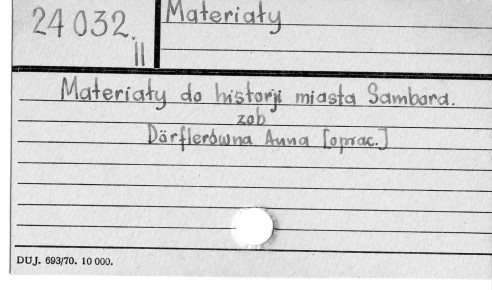 24032.
II
Materiały
Materiały do historji miasta Sambora.
zob
Dörflerówna Anna [oprac.]
DUJ. 693/70. 10 000.